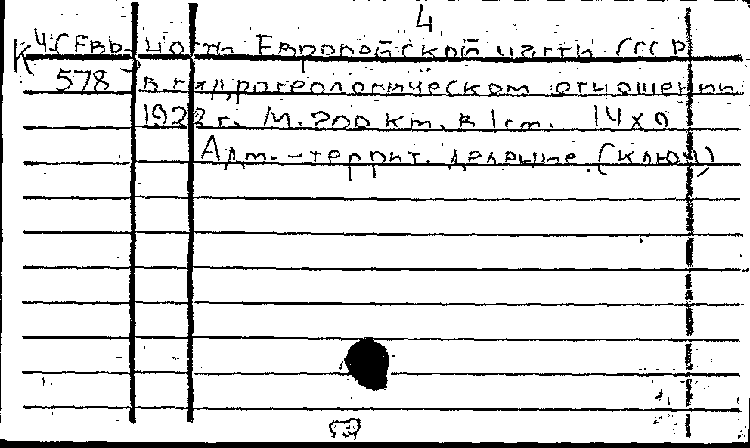 4
К 4. Севр. часть Европейской части СССР
578 в гидрогеологическом отношении
1928 г. М. 200 км. в 1 см. 14 х 9
Адм.-террит. деление (ключ)